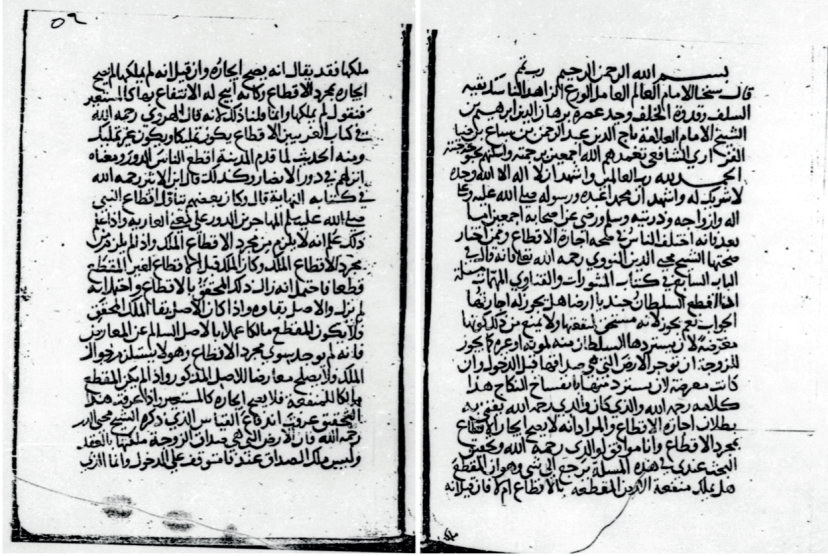 بسم الله الرحمن الرحيم
قال شيخنا الامام العالم العامل الورع الزاهد الناسك بقية
السلف وقدوة الخلف وحيد عصره برهان الدين ابراهيم بن
الشيخ الامام العلامة تاج الدين عبد الرحمن بن سباع بن ضيا
الفزاري الشافعي تغمدهم الله اجمعين برحمته واسكنهم بحبوحة جنته
الحمد لله رب العالمين واشهد ان لا اله الا الله وحده
لا شريك له واشهد ان محمدا عبده ورسوله صلى الله عليه وعلى
اله وازواجه وذريته وسلم ورضي عن اصحابه اجمعين اما
بعد فانه اختلف الناس في صحة اجارة الاقطاع وممن اختار
صحتها الشيخ محيي الدين النووي رحمه الله تعالى فانه قال في
الباب السابع في كتاب المنثورات والفتاوي المهمات مسئلة
اذا اقطع السلطان جنديا ارضا هل يجوز له اجارتها
الجواب نعم يجوز لانه مستحق لمنفعتها ولا يمنع من ذلك كونها
معرضة لان يستردها السلطان منه بموته او غيره كما يجوز
للزوجة ان توجر الارض التي هي صداقها قبل الدخول وان
كانت معرضة لان يسترد منها بانفساخ النكاح هذا
كلامه رحمه الله والذي كان والدي رحمه الله يفتي به
بطلان اجارة الاقطاع والمراد انه لا يصح ايجار الاقطاع
بمجرد الاقطاع وانا موافق لوالدي رحمه الله وتحقيق
البحث عندي في هذه المسئلة يرجع الى شي وهو ان المقطع
هل يملك منفعة الارض المقطعة بالاقطاع ام لا فان قيل انه
ملكها فقد يقال انه يصح ايجاره وان قيل انه لم يملكها لم يصح
ايجاره بمجرد الاقطاع وكانه ابيح له الانتفاع بها كالمستعير
فنقول لم يملكها وانما قلنا ذلك لانه قال الهروي رحمه الله
في كتاب الغريبين الاقطاع يكون تمليكا ويكون غير تمليك
ومنه الحديث لما قدم المدينة اقطع الناس الدور ومعناه
انزلهم في دور الانصار وكذلك قال ابن الاثير رحمه الله
في كتابه النهاية قال وكان بعضهم يتاول اقطاع النبي
صلى الله عليه وسلم المهاجرين الدور على معنى العارية واذا علم
ذلك علم انه لا يلزم من مجرد الاقطاع الملك واذا لم يلزم من
مجرد الاقطاع الملك وكان الملك قبل الاقطاع لغير المقطع
قطعا فاحتمل انه زال ذلك المحقق بالاقطاع واحتمل انه
لم يزل والاصل بقاوه واذا كان الاصل بقا الملك المحقق
فلا يكون المقطع مالكا عملا بالاصل السالم عن المعارض
فانه لم يوجد سوى مجرد الاقطاع وهو لا يستلزم زوال
الملك ولا يصلح معارضا للاصل المذكور واذا لم يكن المقطع
مالكا للمنفعة فلا يصح ايجاره كالمستعير اذا عرفت هذا
التحقيق عرفت اندفاع القياس الذي ذكره الشيخ محيي الدين
رحمه الله فان الارض التي هي صداق الزوجة ملكتها بالعقد
وليس ملك الصداق عندنا متوقف على الدخول وانما الذي